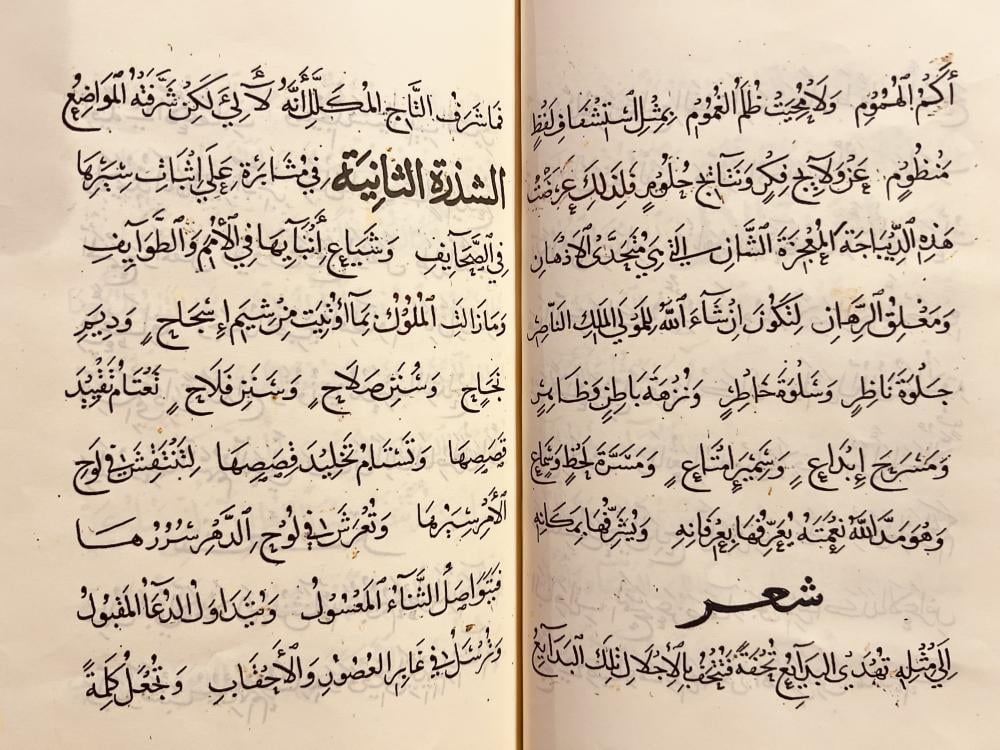 أكم الهموم ولا محيت ظلم الغموم بمثل استشفاف لفظ
منظوم عزو لايح فكر ونتايج حلوم فلذلك عرضت
هذه الديباجة المعجزة الشان التي تتحدى الاذهان
ومغلق الرهان لتكون ان شاء الله للمولى الملك الناصر
جلوة ناظر وسلوة خاطر ونزهة باطن وظاهر
ومسرح إبداع وسمير إمتاع ومسرة لحظ وسماع
وهو مد الله نعمته يعرفها بعرفانه ويشرفها بمكانه
شعر
إلى مثله تهدى البدايع تحفة فتتحف بالإجلال تلك البدايع
فما شرف التاج المكلل أنه لآلئ لكن شرفته المواضع
الشذرة الثانية في مثابرة على إثبات سيرها
في الصحايف وشياع أنبايها في الأمم والطوايف
وما زالت الملوك بما أوتيت من شيم إسجاح وديم
نجاح وسنن صلاح وسنن فلاح تعتام تقييد
قصصها وتستام تخليد قصصها لتنتقش في لوح
الأمر سيرها وتعرش في لوح الدهر سررها
فيتواصل الثناء المعسول ويتداول الدعاء المقبول
وترسل في غابر العصور والأحقاب وتجعل كلمة